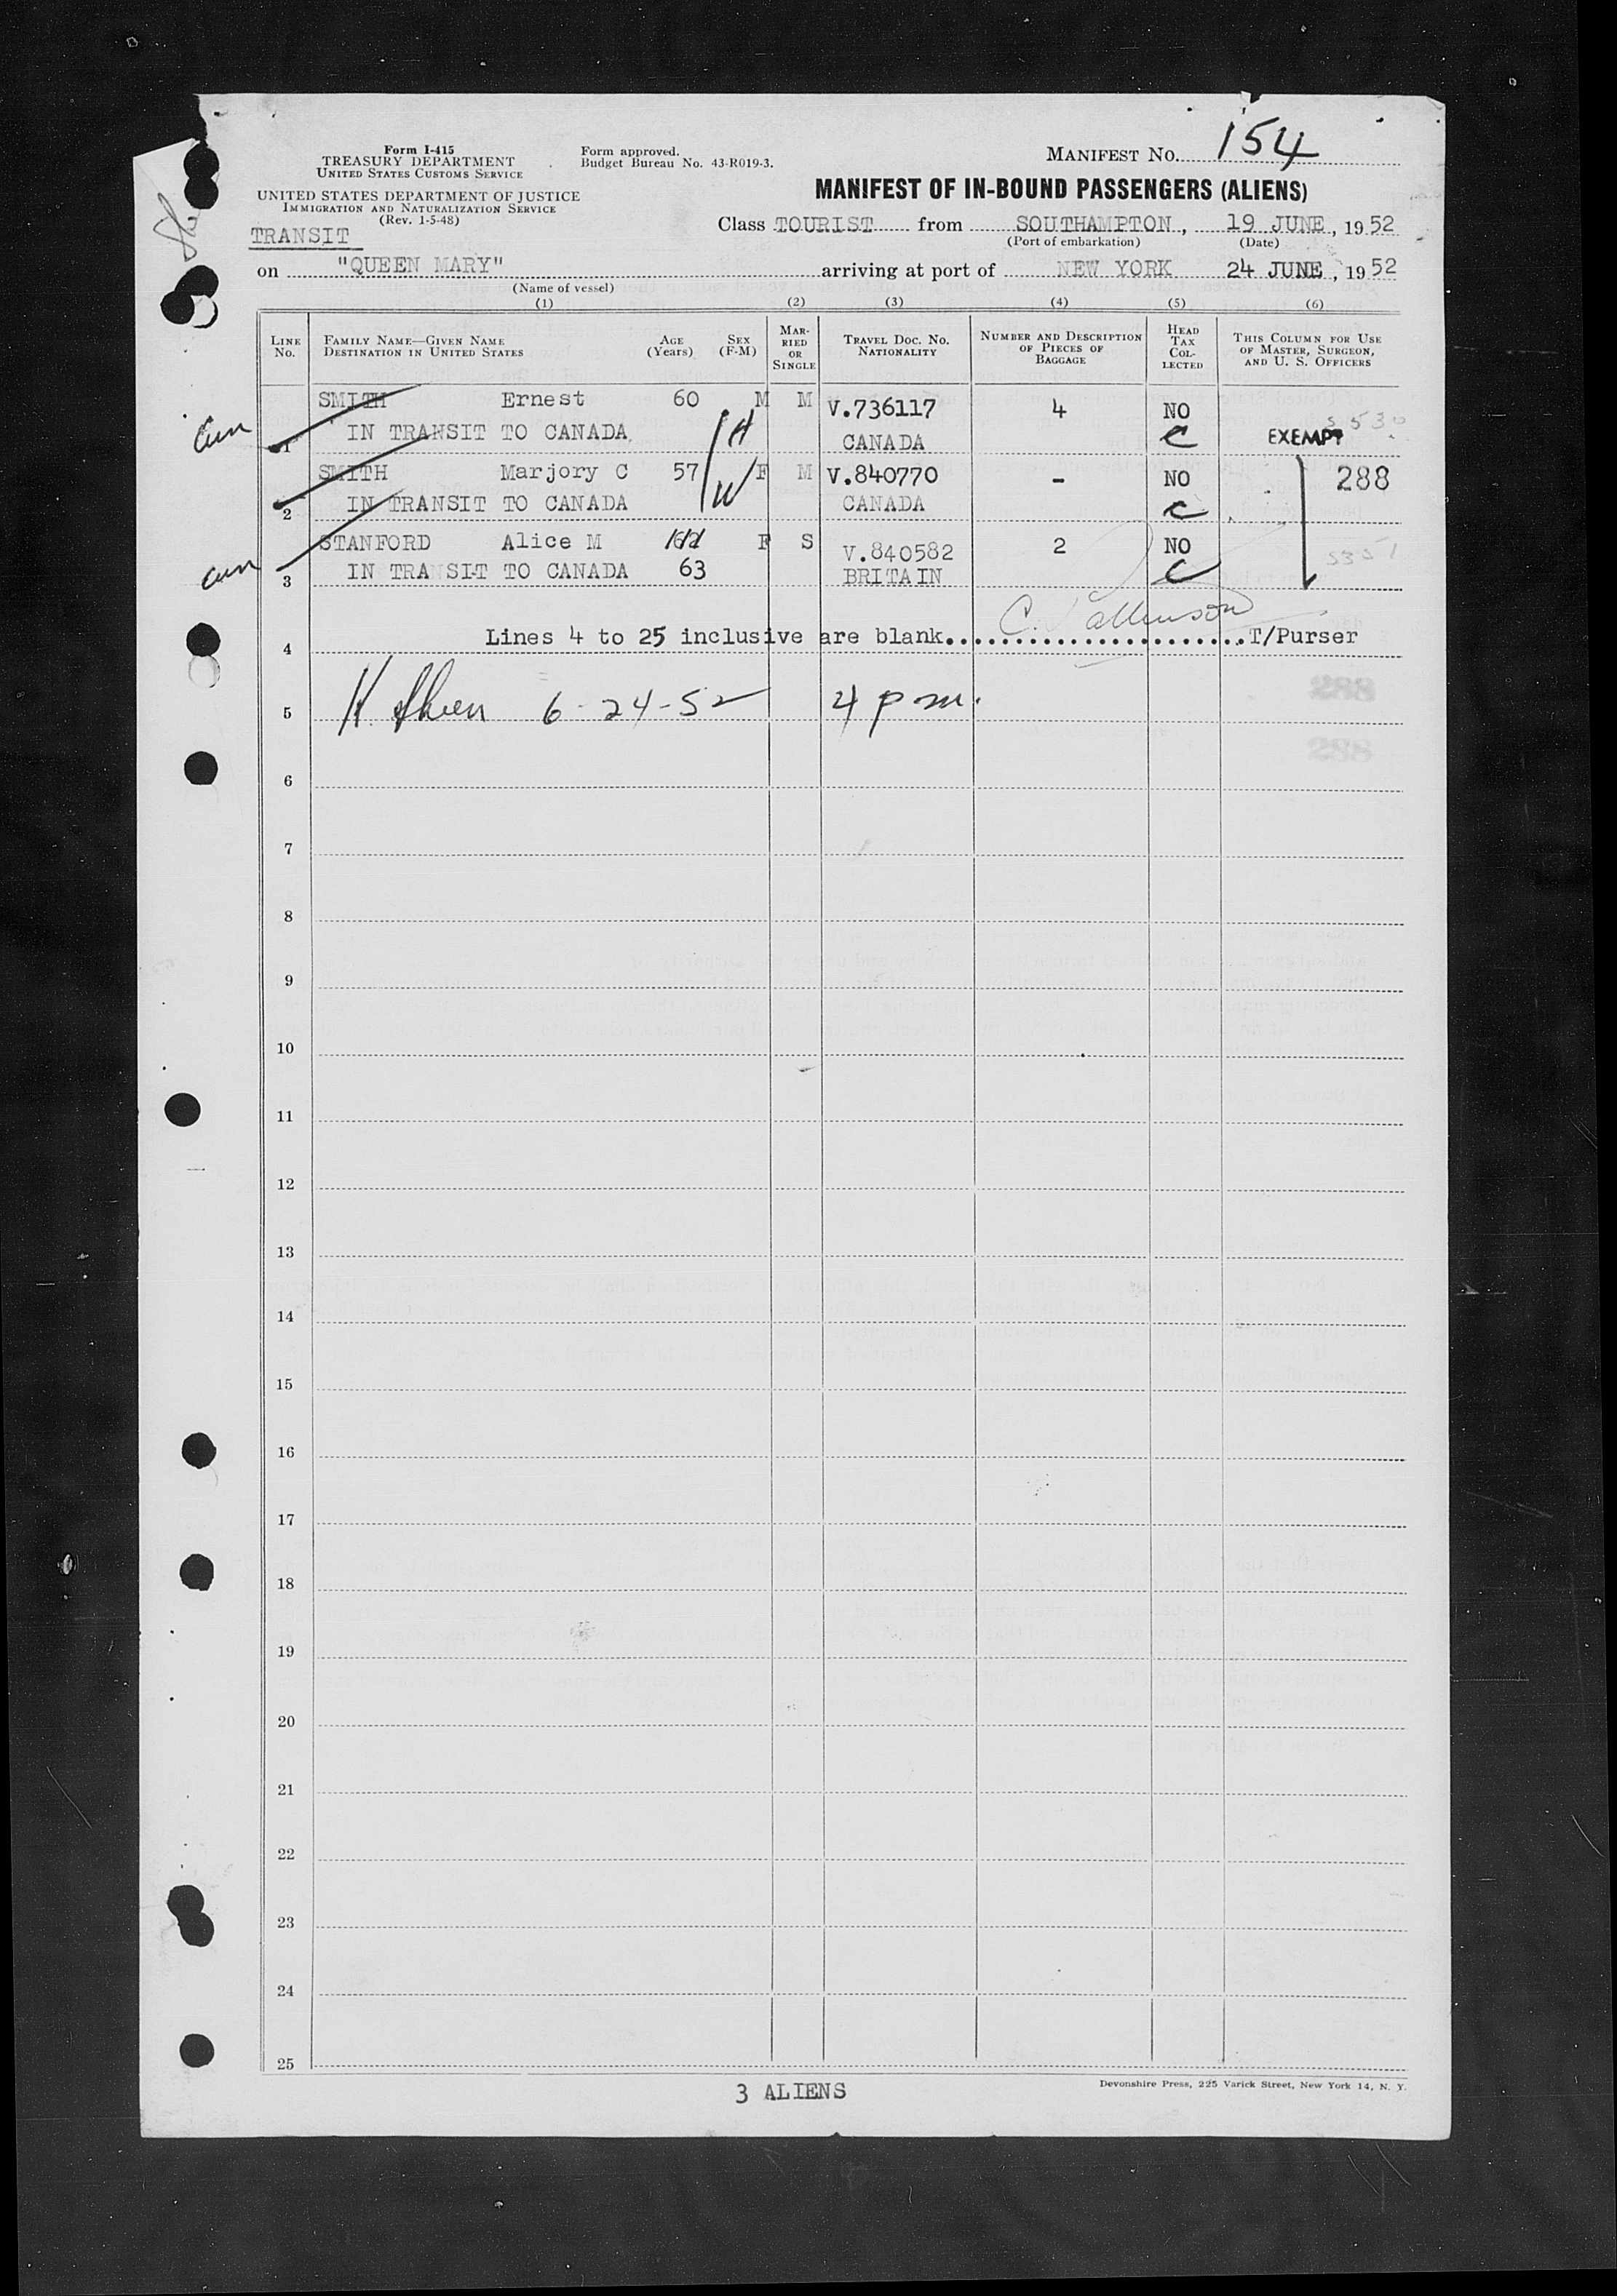 154
Form I-415
TREASURY DEPARTMENT
UNITED STATES CUSTOMS SERVICE
Form approved.
Budget Bureau No. 43-R019-3.
MANIFEST NO.
UNITED STATES DEPARTMENT OF JUSTICE
IMMIGRATION AND NATURALIZATION SERVICE
(Rev. 1-5-48)
MANIFEST OF IN-BOUND PASSENGERS (ALIENS)
TRANSIT
Class TOURIST from SOUTHAMPTON, 19 JUNE, 1952
(Port of embarkation) (Date)
on "QUEEN MARY" arriving at port of NEW YORK 24 JUNE, 1952
(Name of vessel)
(1) (2) (3) (4) (5) (6)
LINE NO. FAMILY NAME—GIVEN NAME DESTINATION IN UNITED STATES AGE (Years) SEX (F-M) MARRIED OR SINGLE TRAVEL DOC. NO. NATIONALITY NUMBER AND DESCRIPTION OF PIECES OF BAGGAGE HEAD TAX COLLECTED THIS COLUMN FOR USE OF MASTER, SURGEON, AND U. S. OFFICERS
SMITH Ernest 60 M M V.736117 4 NO
1 IN TRANSIT TO CANADA H CANADA C EXEMPT
SMITH Marjory C 57 F M V.840770 - NO 288
2 IN TRANSIT TO CANADA W CANADA C
STANFORD Alice M F S V.840582 2 NO
3 IN TRANSIT TO CANADA 63 BRITAIN C
4 Lines 4 to 25 inclusive are blank T/Purser
5 6-24-52 4 pm.
288
288
6
7
8
9
10
11
12
13
14
15
16
17
18
19
20
21
22
23
24
25
3 ALIENS
Devonshire Press, 225 Varick Street, New York 14, N. Y.